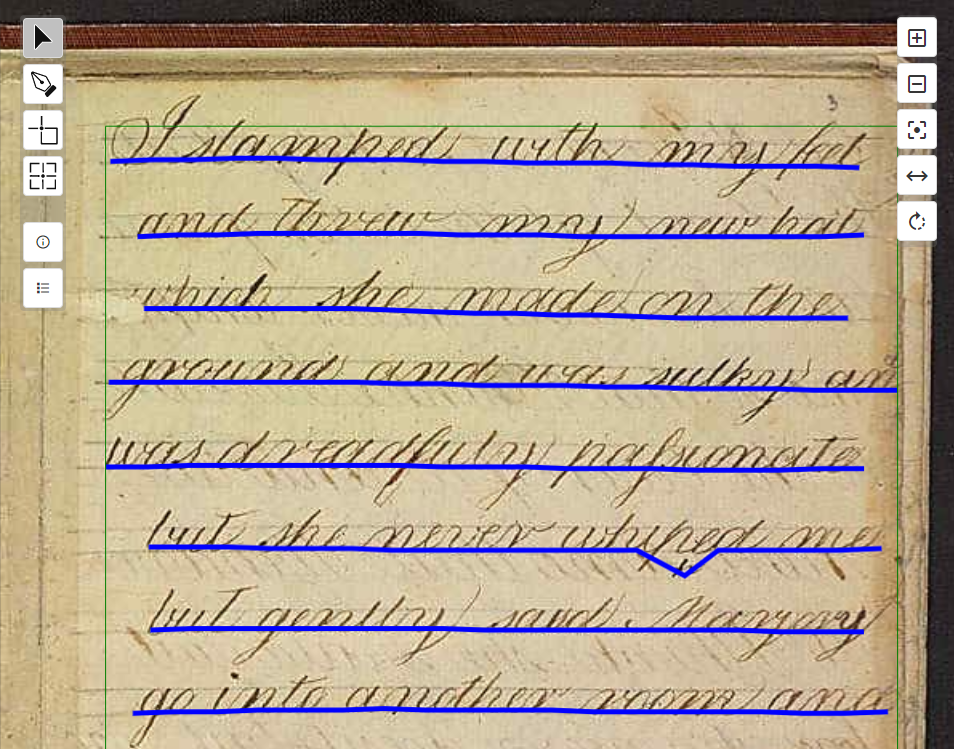 3
I stamped with my feet
and threw my new hat
which she made on the
ground and was sulky an
was dreadfuly passionate
but she never whiped me
but gently said Margery
go into another room and